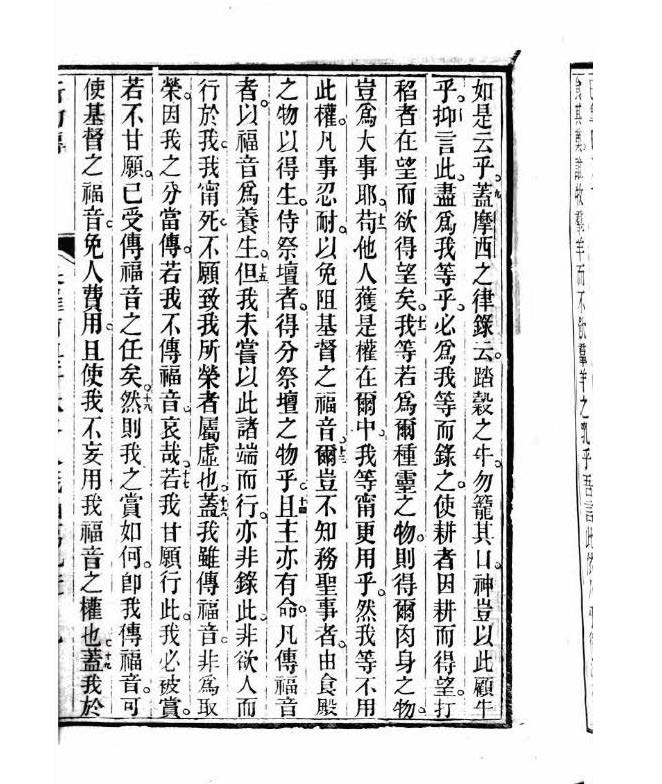 食其奠誰牧羣羊而不飲羣羊之乳乎吾言此
如是云乎。九蓋摩西之律錄云。踏穀之牛。勿籠其口。神豈以此顧牛
乎。十抑言此。盡爲我等乎。必爲我等而錄之。使耕者因耕而得望。打
稻者在望而欲得望矣。十一我等若爲爾種靈之物。則得爾肉身之物
豈爲大事耶。十二苟他人獲是權在爾中。我等甯更用乎。然我等不用
此權。凡事忍耐。以免阻基督之福音。十三爾豈不知務聖事者。由食殿
之物以得生。侍祭壇者。得分祭壇之物乎。十四且主亦有命。凡傳福音
者。以福音爲養生。十五但我未嘗以此諸端而行。亦非錄此。非欲人而
行於我。我甯死。不願致我所榮者屬虛也。十六蓋我雖傳福音。非爲取
榮。因我之分當傳。若我不傳福音。哀哉。十七若我甘願行此。我必被賞。
若不甘願。已受傳福音之任矣。十八然則我之賞如何。卽我傳福音。可
使基督之福音。免人費用。且使我不妄用我福音之權也。十九蓋我於